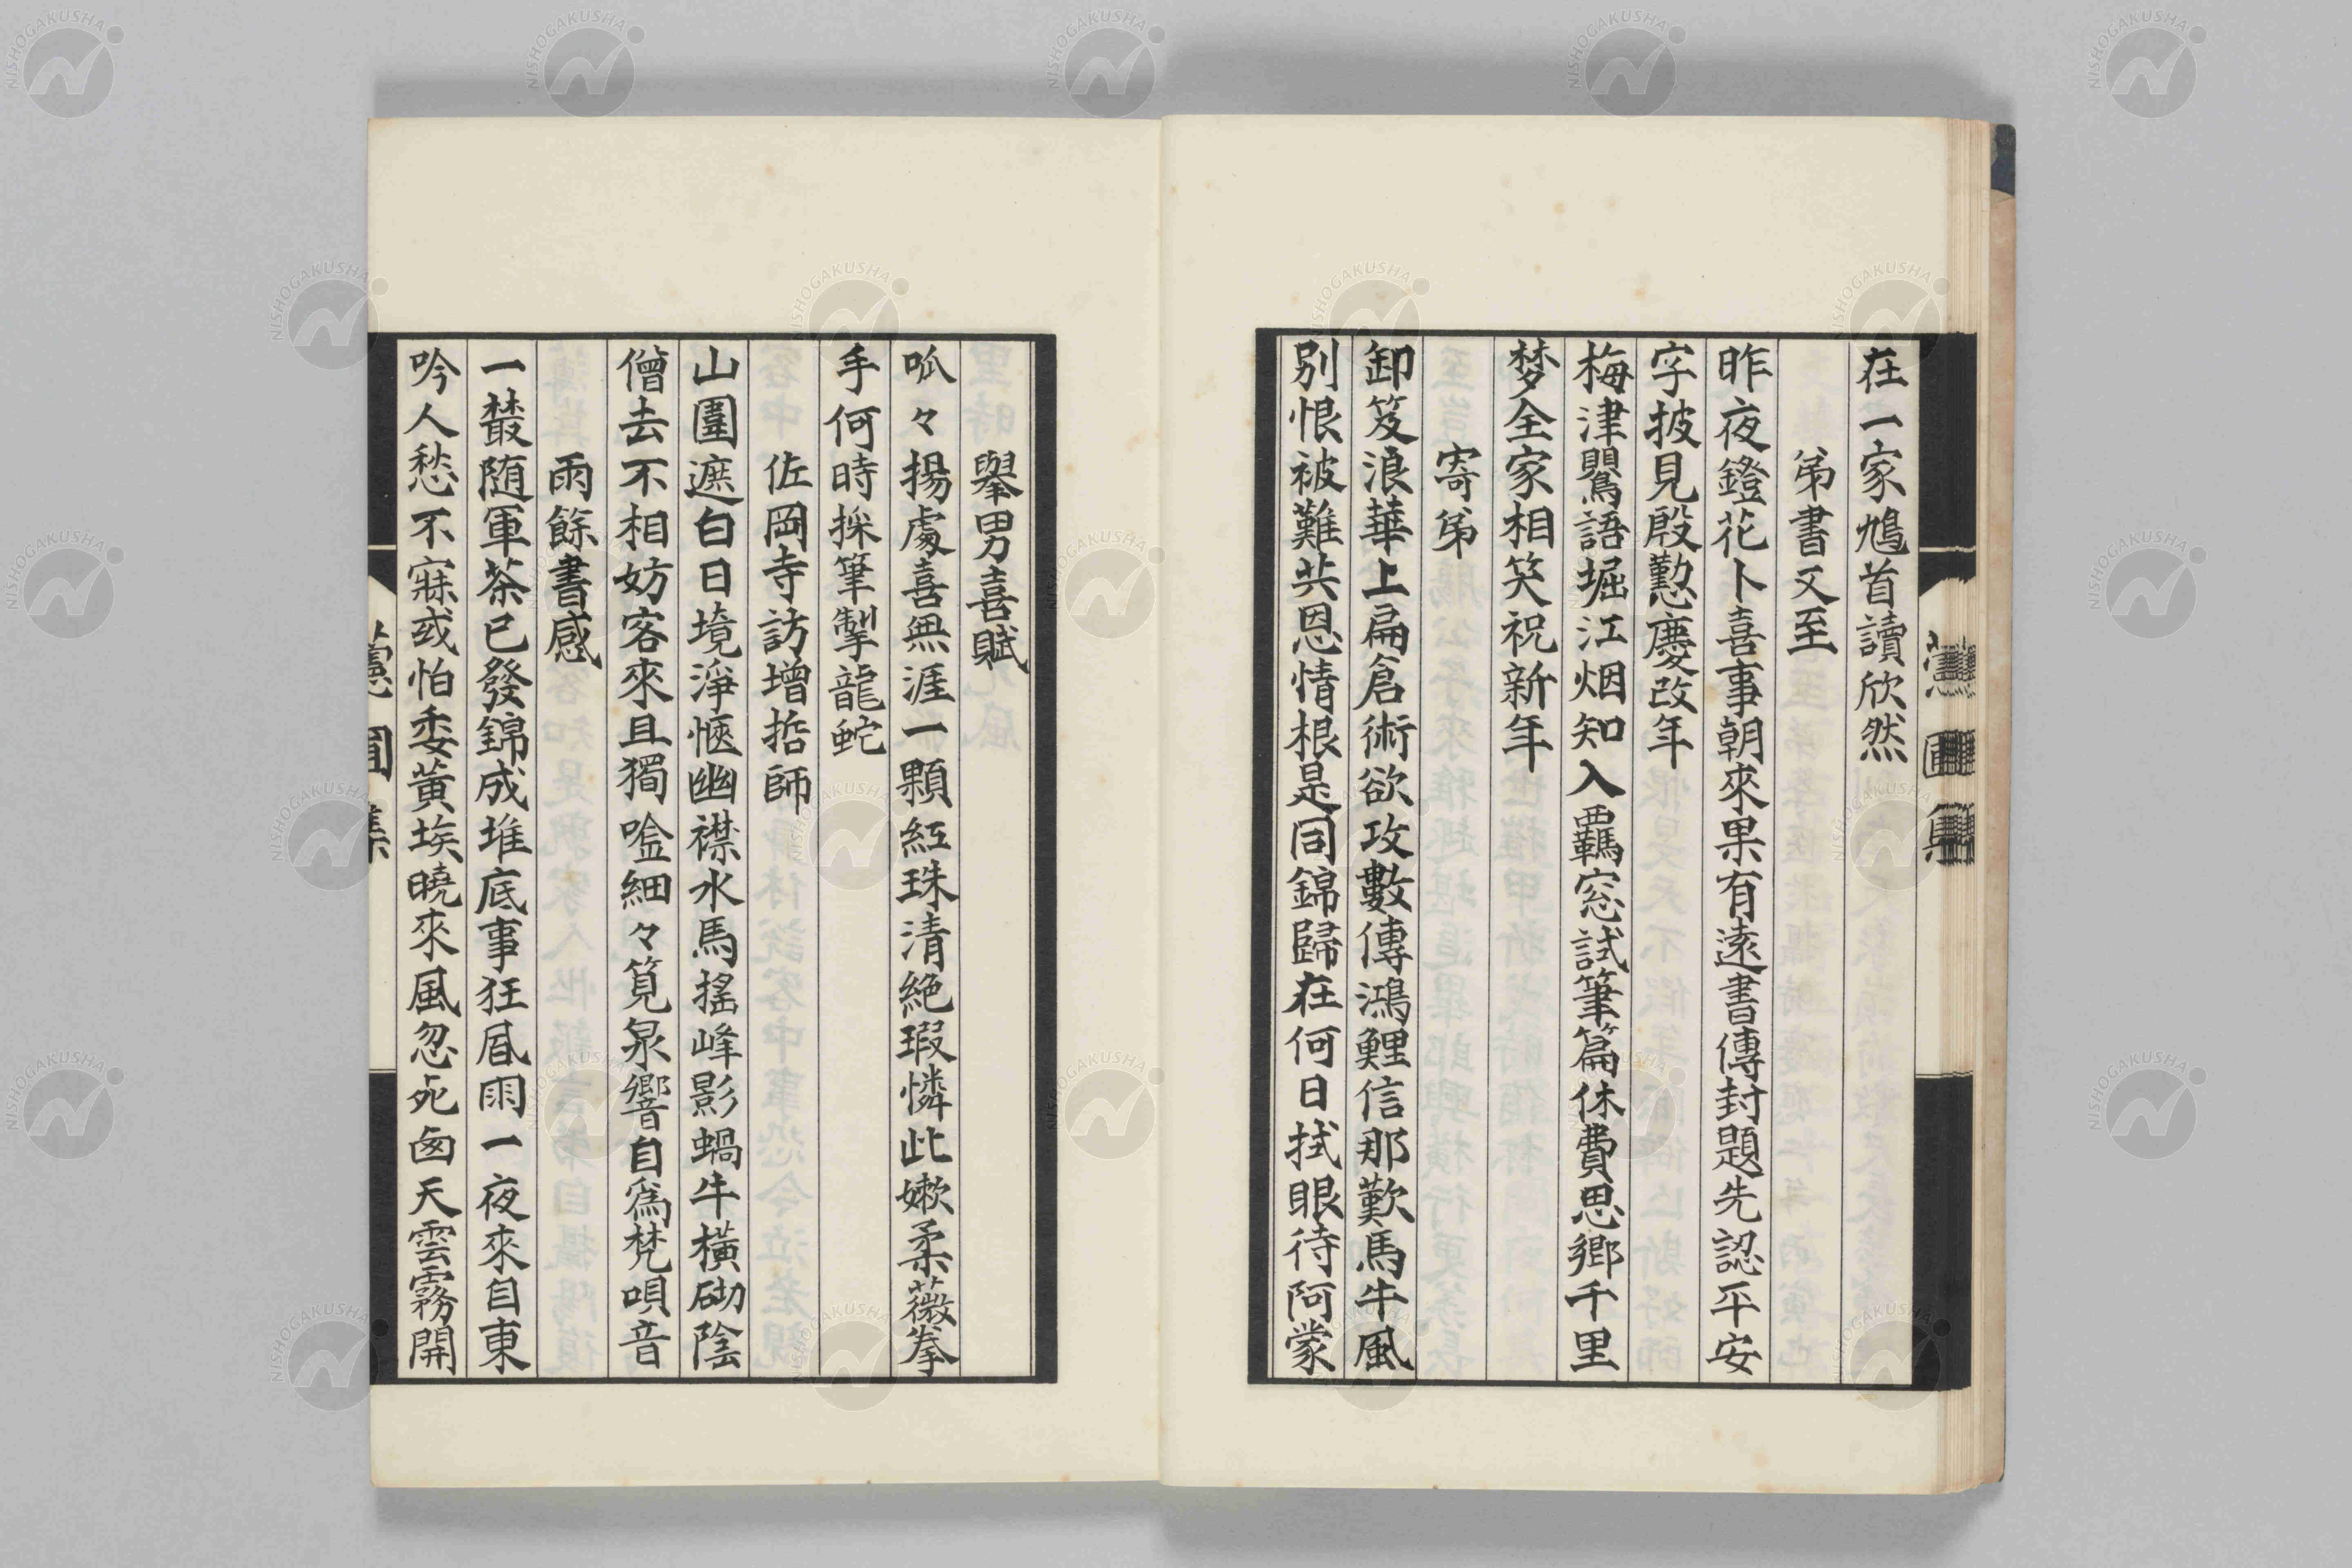 在一家鳩首讀欣然
弟書又至
昨夜鐙花卜喜事朝來果有遠書傳封題先認平安
字披見殷懃慶改年
梅津鸎語堀江烟知入羈窓試筆篇休費思鄉千里
梦全家相笑祝新年
寄弟
卸笈浪華上扁倉術欲攻數傳鴻鯉信那歎馬牛風
別恨被難共恩情根是同錦歸在何日拭眼待阿蒙
擧男喜賦
呱々揚處喜無涯一顆紅珠清絶瑕憐此嫩柔薇拳
手何時採筆掣龍蛇
佐岡寺訪增哲師
山圍遮白日境淨愜幽襟水馬搖峰影蝸牛橫砌陰
僧去不相妨客來且獨唫細々筧泉響自爲梵唄音
雨餘書感
一叢随軍茶已發錦成堆底事狂凮雨一夜來自東
吟人愁不寐或怕委黃埃曉來風忽死囪天雲霧開
NISHOGAKUSHA